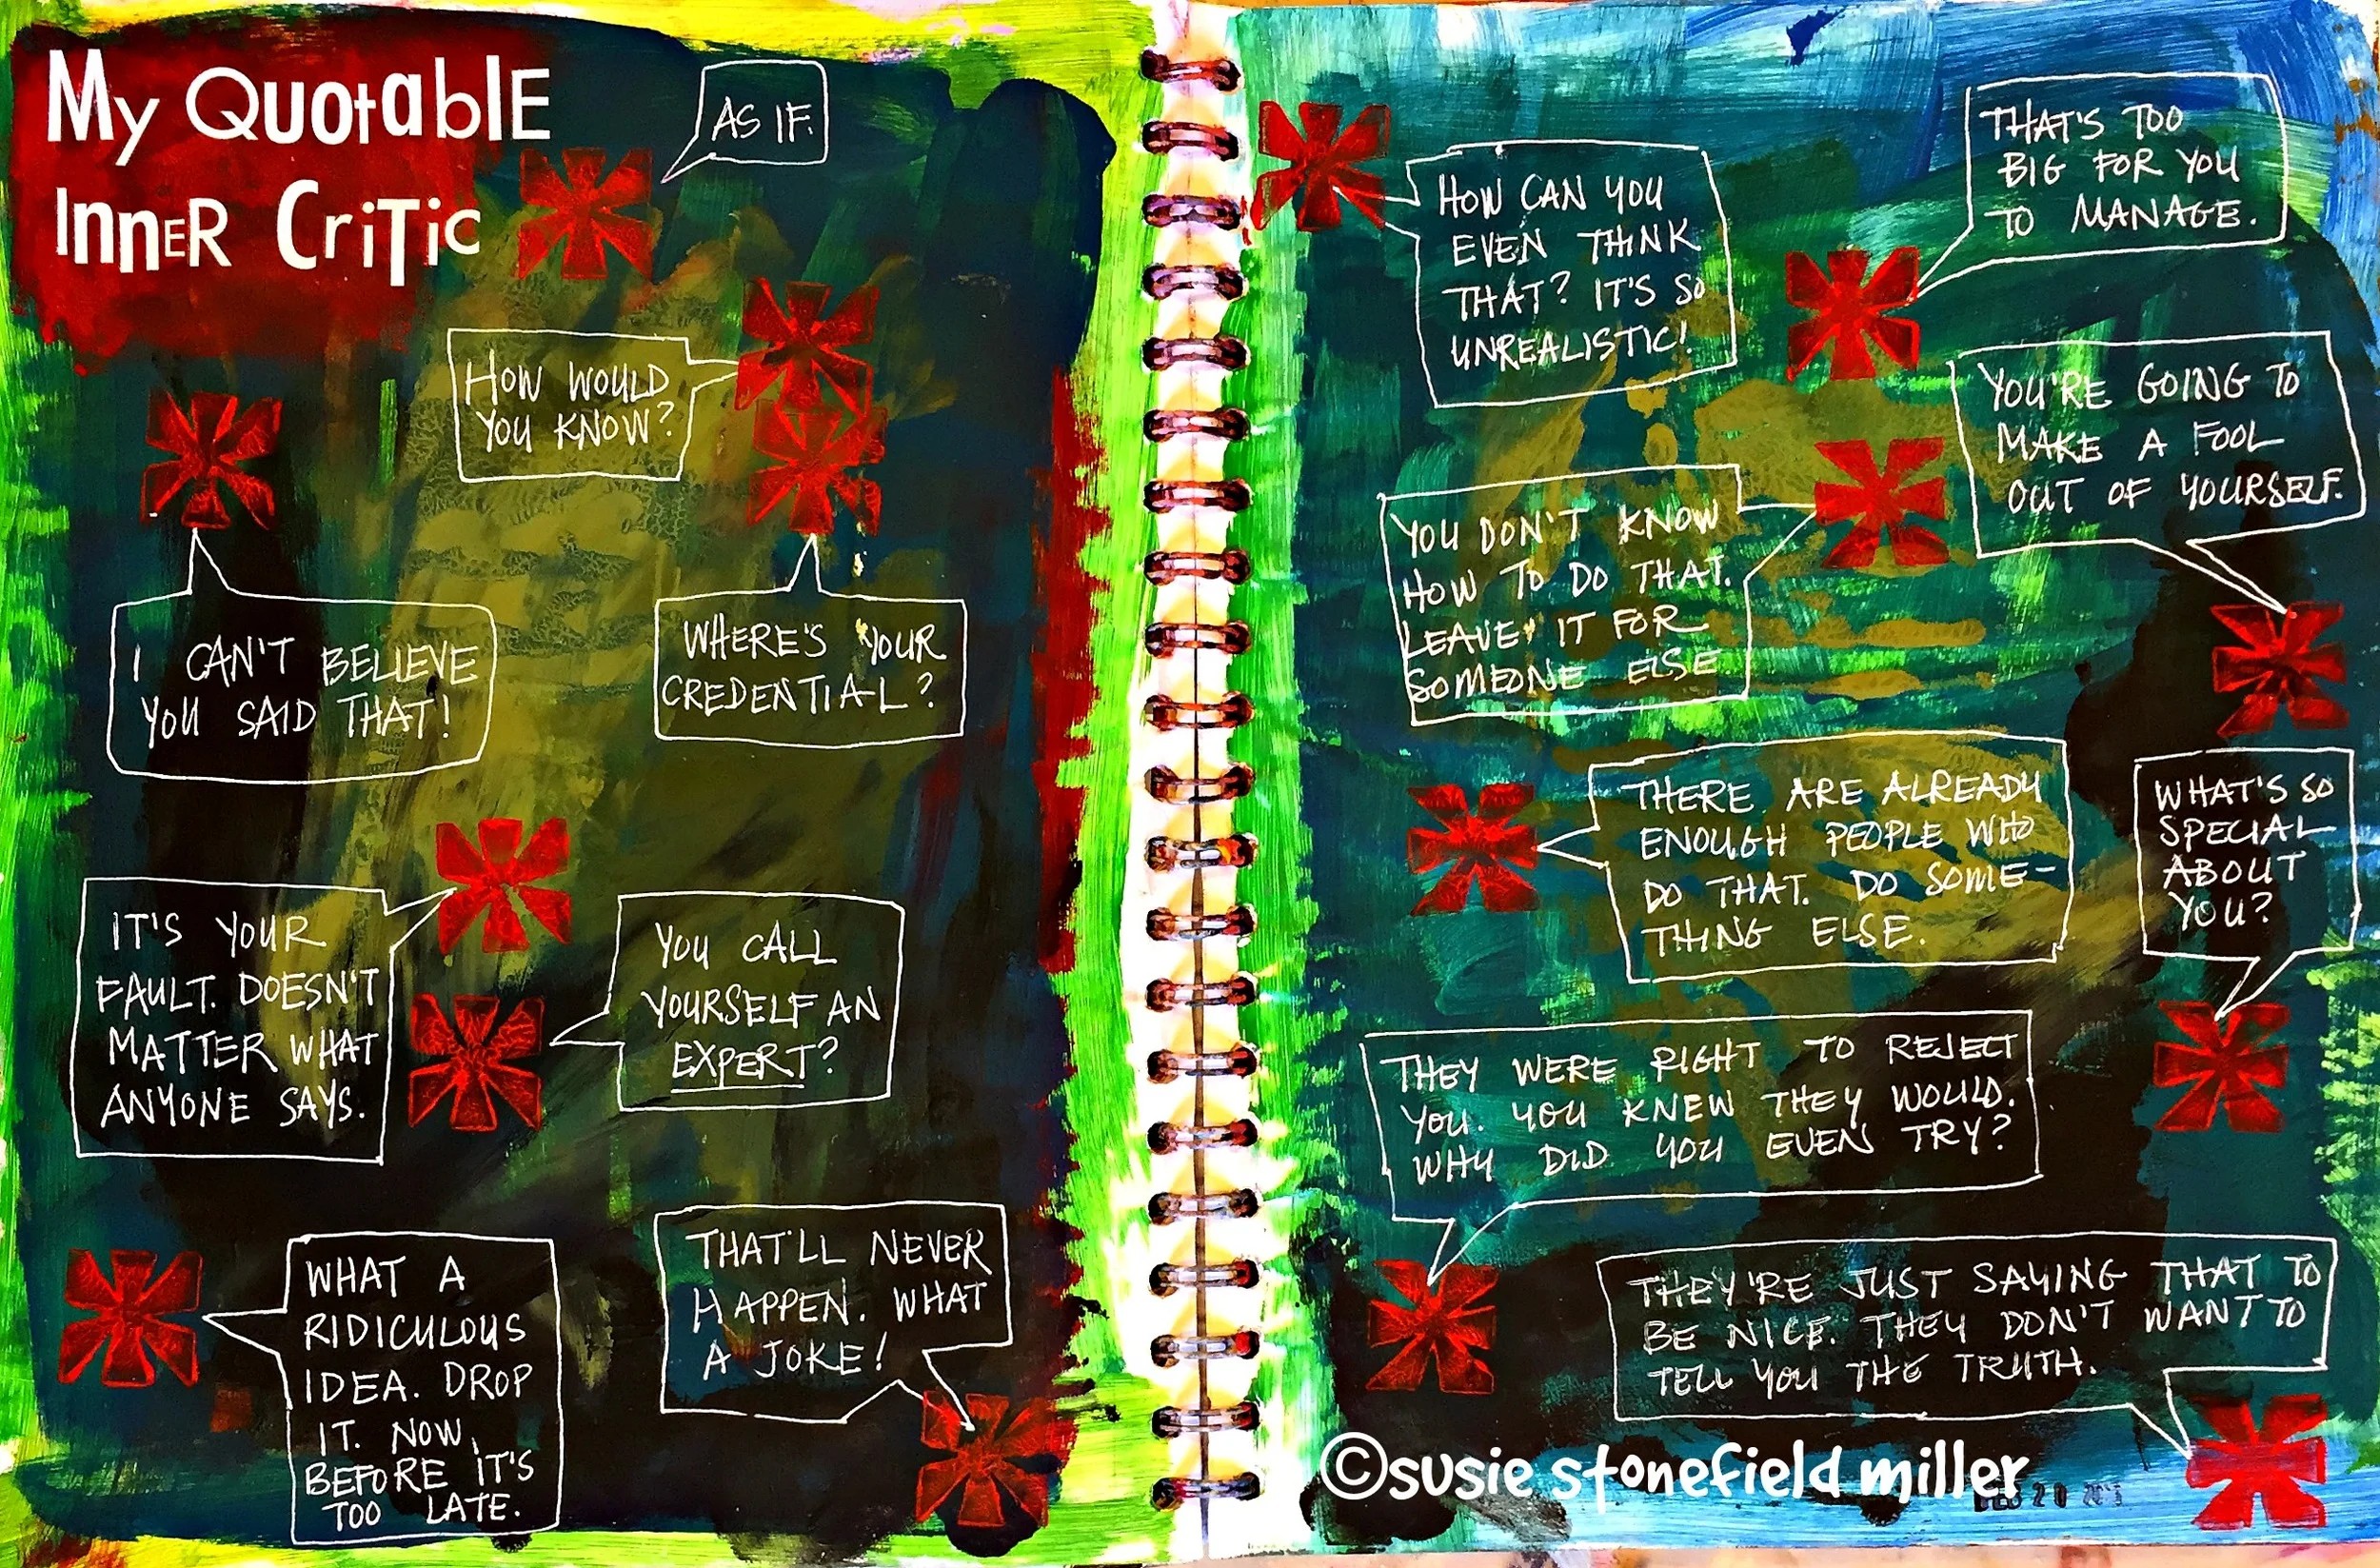 My Quotable
Inner Critic
AS IF.
HOW WOULD
YOU KNOW?
I CAN'T BELIEVE
YOU SAID THAT!
WHERE'S YOUR
CREDENTIAL?
IT'S YOUR
FAULT. DOESN'T
MATTER WHAT
ANYONE SAYS.
YOU CALL
YOURSELF AN
EXPERT?
WHAT A
RIDICULOUS
IDEA. DROP
IT. NOW,
BEFORE IT'S
TOO LATE.
THAT'LL NEVER
HAPPEN. WHAT
A JOKE!
HOW CAN YOU
EVEN THINK
THAT? IT'S SO
UNREALISTIC!
THAT'S TOO
BIG FOR YOU
TO MANAGE.
YOU'RE GOING TO
MAKE A FOOL
OUT OF YOURSELF.
YOU DON'T KNOW
HOW TO DO THAT.
LEAVE IT FOR
SOMEONE ELSE
THERE ARE ALREADY
ENOUGH PEOPLE WHO
DO THAT. DO SOME-
THING ELSE.
WHAT'S SO
SPECIAL
ABOUT
YOU?
THEY WERE RIGHT TO REJECT
YOU. YOU KNEW THEY WOULD.
WHY DID YOU EVEN TRY?
THEY'RE JUST SAYING THAT TO
BE NICE. THEY DON'T WANT TO
TELL YOU THE TRUTH.
©susie stonefield miller
20